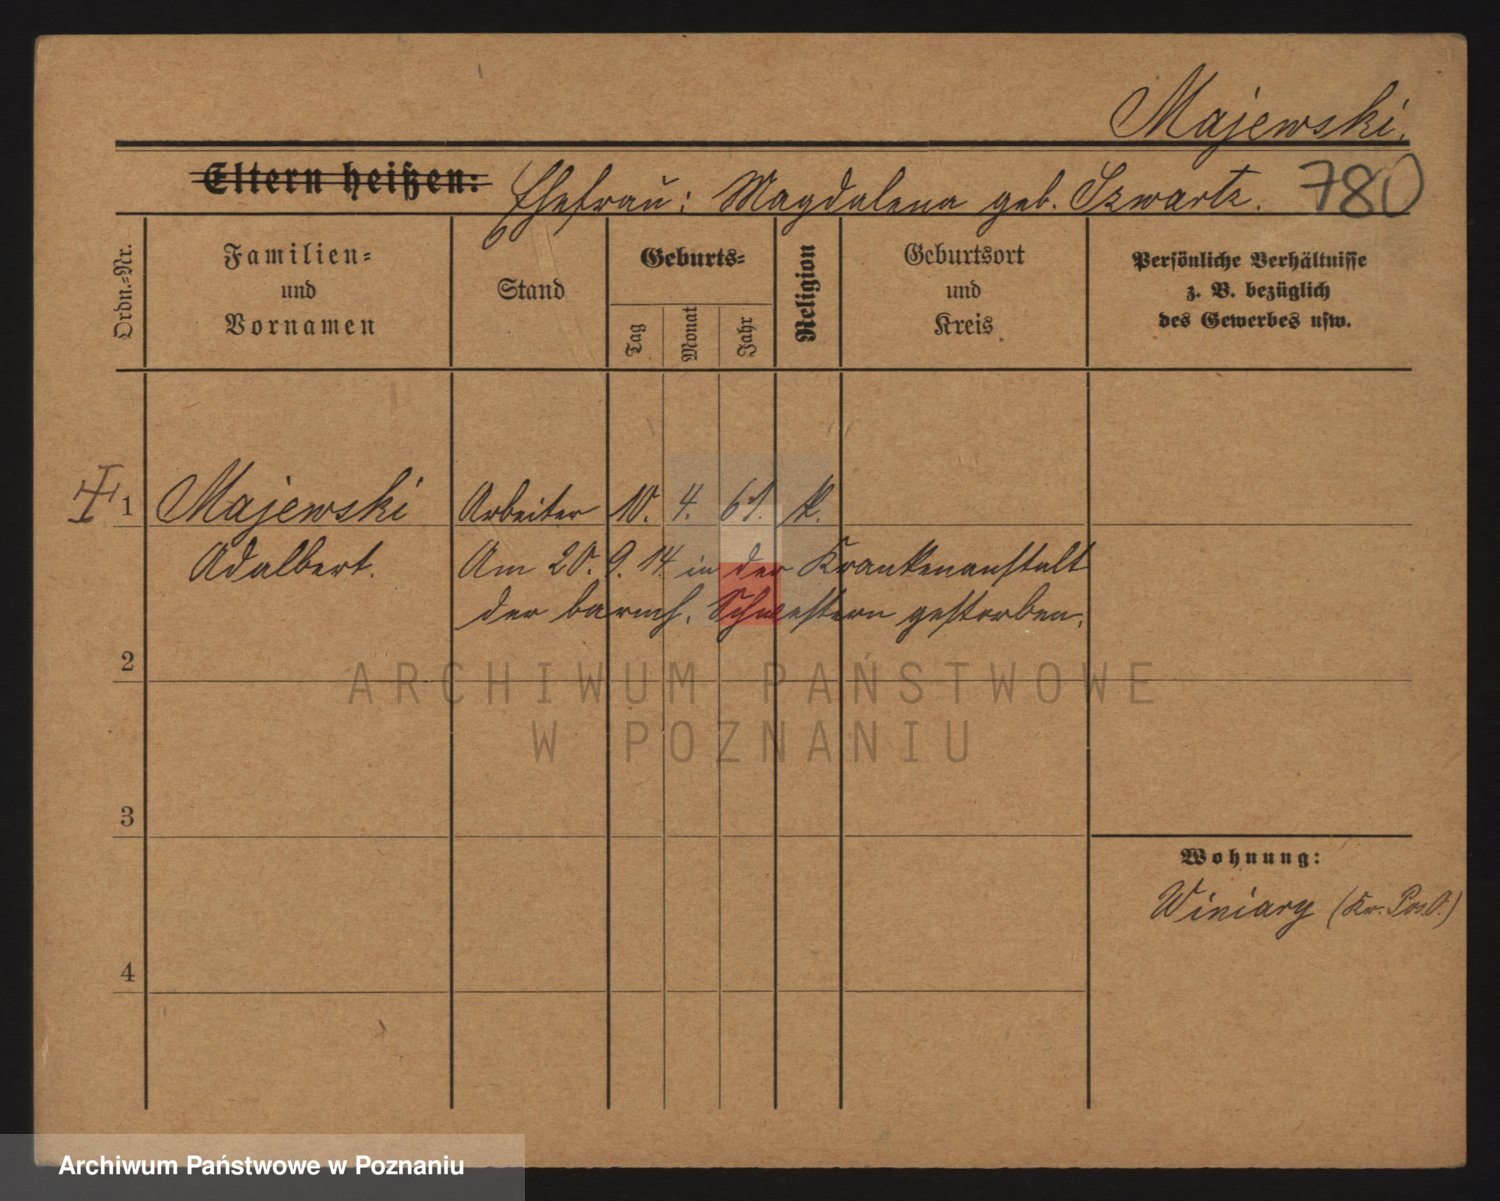 Majewski.
Eltern heißen: Ehefrau: Magdalena geb. Szwartz. 780
Ordn.-Nr.
Familien-
und
Vornamen
Stand
Geburts-
Tag
Monat
Jahr
Religion
Geburtsort
und
Kreis
Persönliche Verhältnisse
z. B. bezüglich
des Gewerbes usw.
1 Majewski Arbeiter 10. 4. 61. k.
Adalbert. Am 20. 9. 14. in der Krankenanstalt
der barmh. Schwestern gestorben.
2
ARCHIWUM PAŃSTWOWE
W POZNANIU
3
Wohnung:
Winiary (Kr. Pos. O.)
4
Archiwum Państwowe w Poznaniu